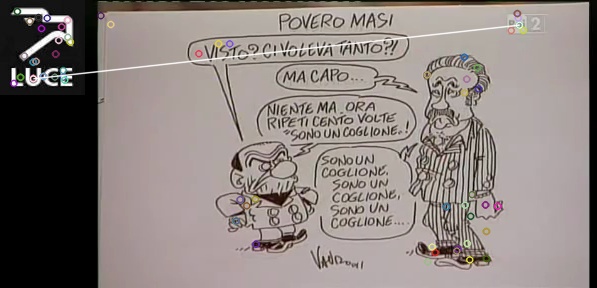 LUCE
POVERO MASI
2
VISTO? CI VOLEVA TANTO?!
MA CAPO...
NIENTE MA. ORA
RIPETI CENTO VOLTE
"SONO UN COGLIONE.!
SONO UN
COGLIONE.
SONO UN
COGLIONE,
SONO UN
COGLIONE....